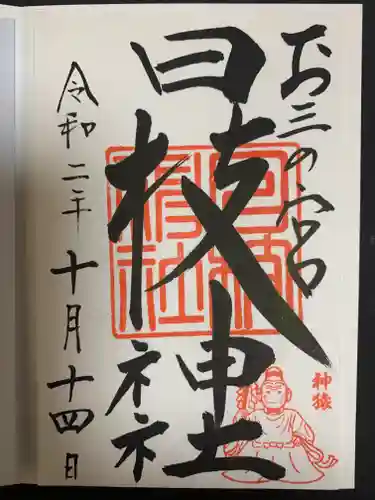 お三の宮
日枝神社
日枝神社
神猿
令和二年十月十四日